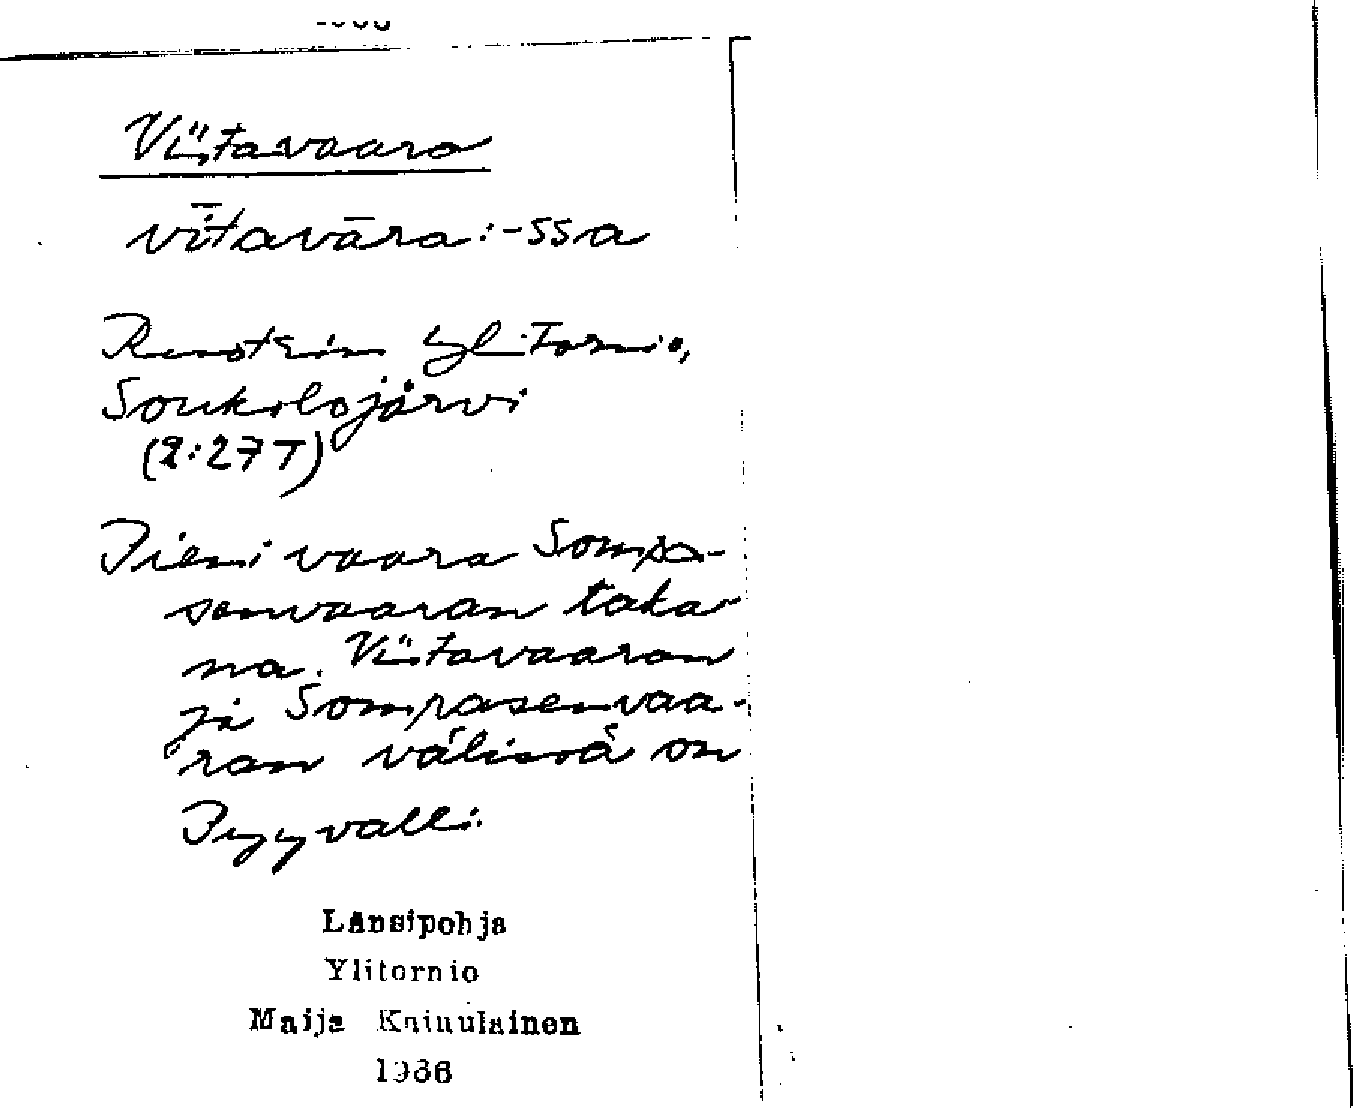 Viitavaara
vītavāra: -ssa
Ruotsin Ylitornio,
Soukolojärvi
(2:27 T)
Pieni vaara Sompa-
senvaaran taka-
na. Viitavaaran
ja Sompasenvaa-
ran välissä on
Pyyvalli.
Länsipohja
Ylitornio
Maija Kainulainen
1966